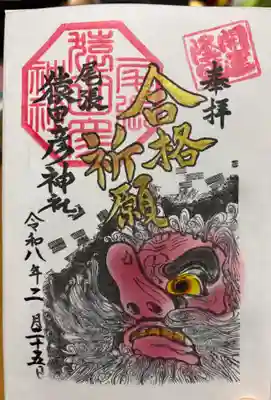 奉拝
開運
合格
祈願
尾張
猿田彦神社
令和八年二月二十五日